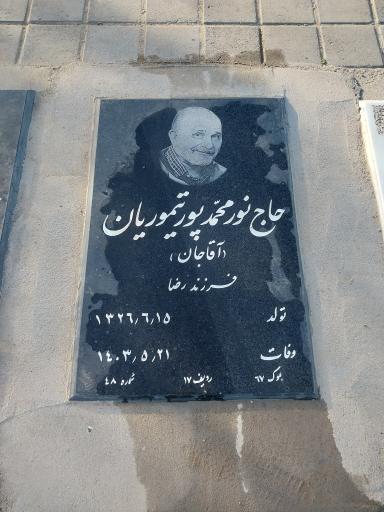 حاج نورمحمدپورتیموریان
(آقاجان)
فرزند رضا
تولد ۱۳۲۶٫۶٫۱۵
وفات ۱۴۰۳٫۵٫۲۱
بلوک ۶۷ ردیف ۱۷ شماره ۴۸